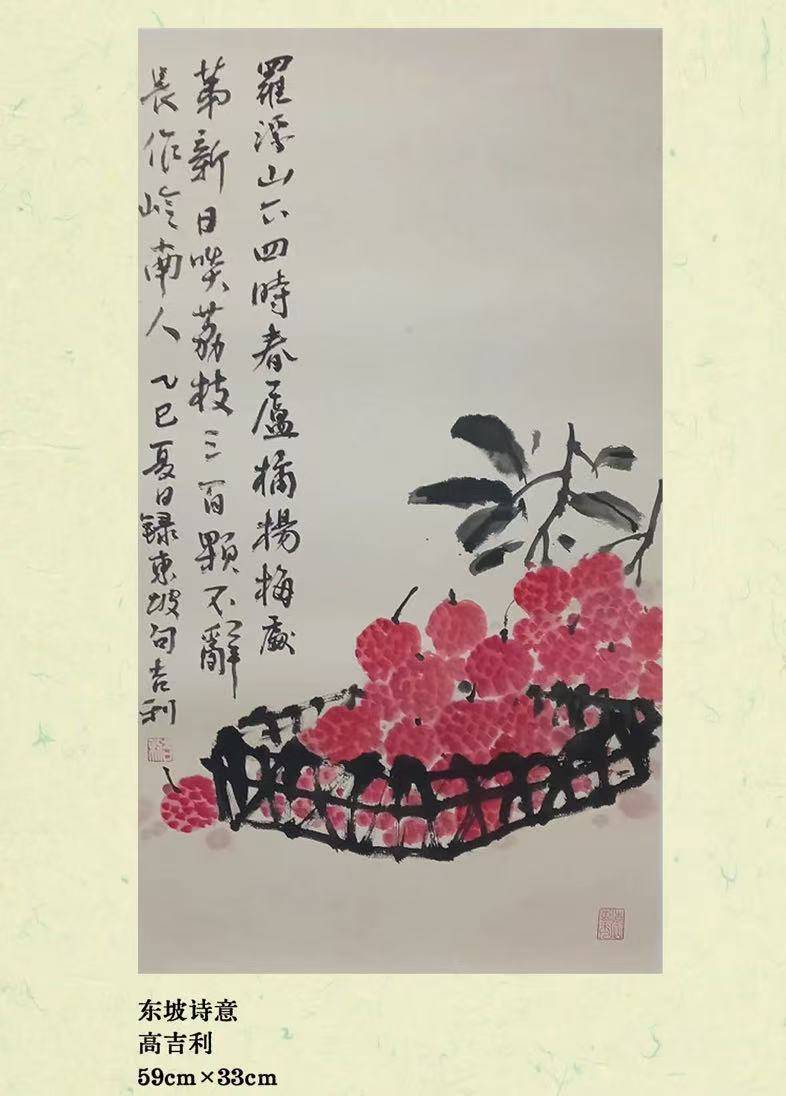 羅浮山下四時春盧橘楊梅處
苐新日啖荔枝三百顆不辭
長作嶺南人 乙巳夏日録東坡句吉利
东坡诗意
高吉利
59cm×33cm